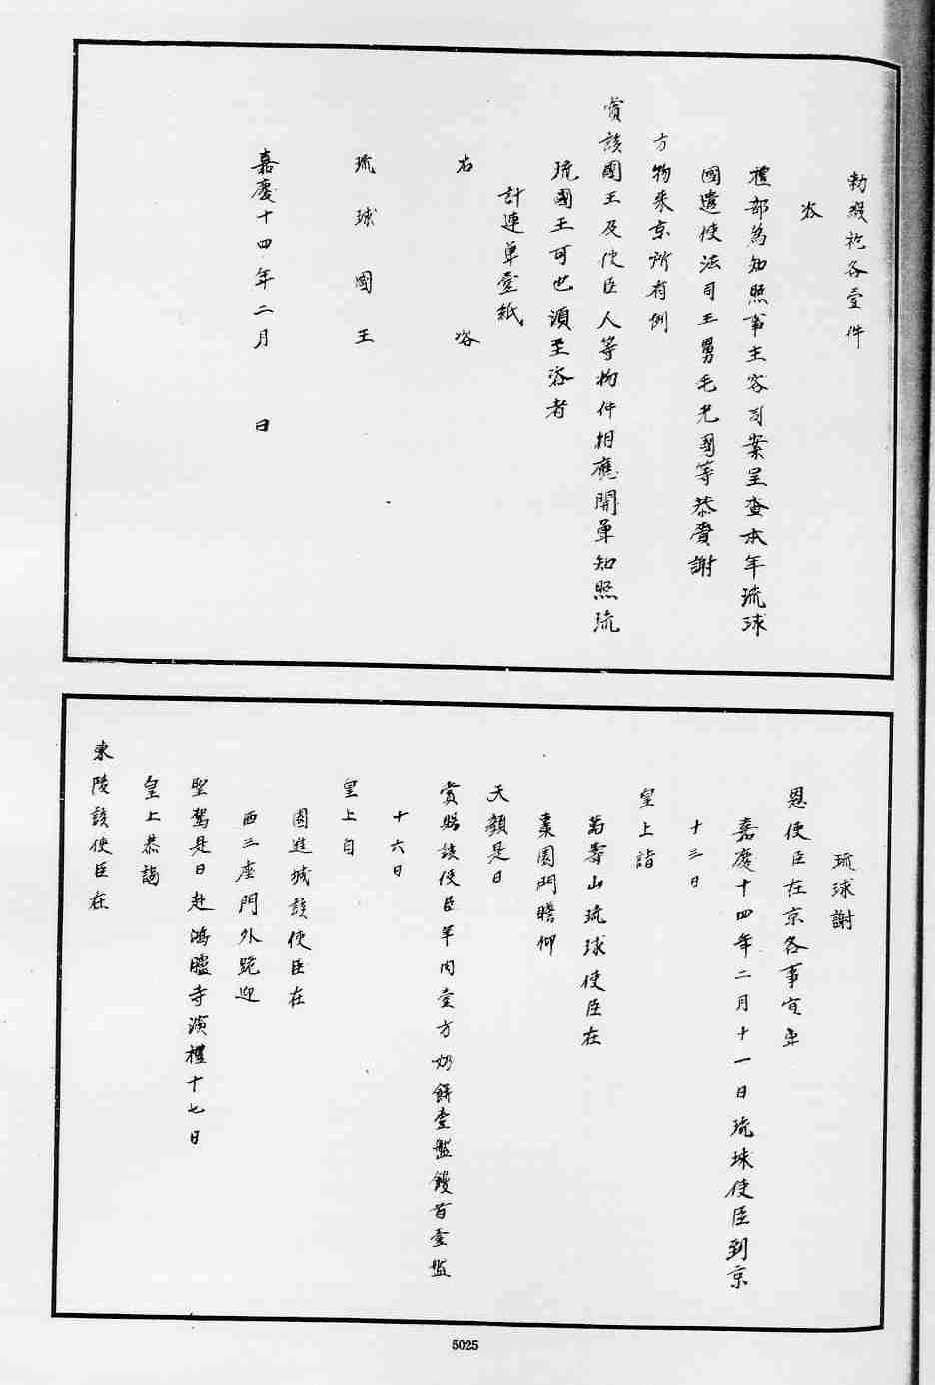 勅殿袍各壹件
咨
禮部為知照事主客司案呈查本年琉球
國遣使法司王舅毛光國等恭賫謝
方物來京所有例
賞該國王及使臣人等物件相應開單知照流
琉國王可也須至咨者
計連單壹紙
右咨
琉球國王
嘉慶十四年二月 日
琉球謝
恩使臣在京各事宜單
嘉慶十四年二月十一日琉球使臣到京
十三日
皇上詣
萬壽山琉球使臣在
園門瞻仰
天顏是日
賞賜該使臣羊肉壹方奶餅壹盤饅首壹盤
十六日
皇上自
園進城該使臣在
西三座門外跪迎
聖駕是日赴鴻臚寺演禮十七日
皇上恭謁
東陵該使臣在
5025